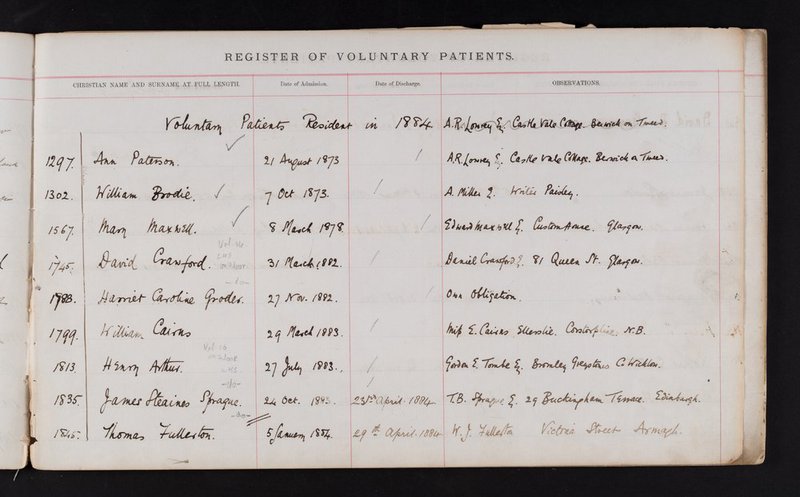 REGISTER OF VOLUNTARY PATIENTS.
CHRISTIAN NAME AND SURNAME AT FULL LENGTH. Date of Admission. Date of Discharge. OBSERVATIONS.
Voluntary Patients Resident in 1884 A.R. Lowrey Castle Vale Cottage. Berwick on Tweed.
1297. Ann Paterson. 21 August 1873 A.R. Lowrey Castle Vale Cottage. Berwick on Tweed.
1302. William Brodie. 7 Oct 1873. A. Millar Writer Paisley.
1567. Mary Maxwell. 8 March 1878 Edward Maxwell Custom House. Glasgow.
1745. David Crawford. 31 March 1882. Daniel Crawford 81 Queen St. Glasgow.
1783. Harriet Caroline 27 Nov. 1882. Own Obligation.
1799. William Cairns 29 March 1883. Miss E. Cairns, Ellerslie. Corstorphine. N.B.
1813 Henry Arthur. 27 July 1883. Bromley Greystones Co Wicklow.
1835 James Steaines Sprague. 24 Oct. 23rd April. 1884 T.B. Sprague 29 Buckingham Terrace. Edinburgh.
1845. Thomas Fullerton. 5 January 1884. 29th April. 1884 W. J. Fullerton Victoria Street Armagh.